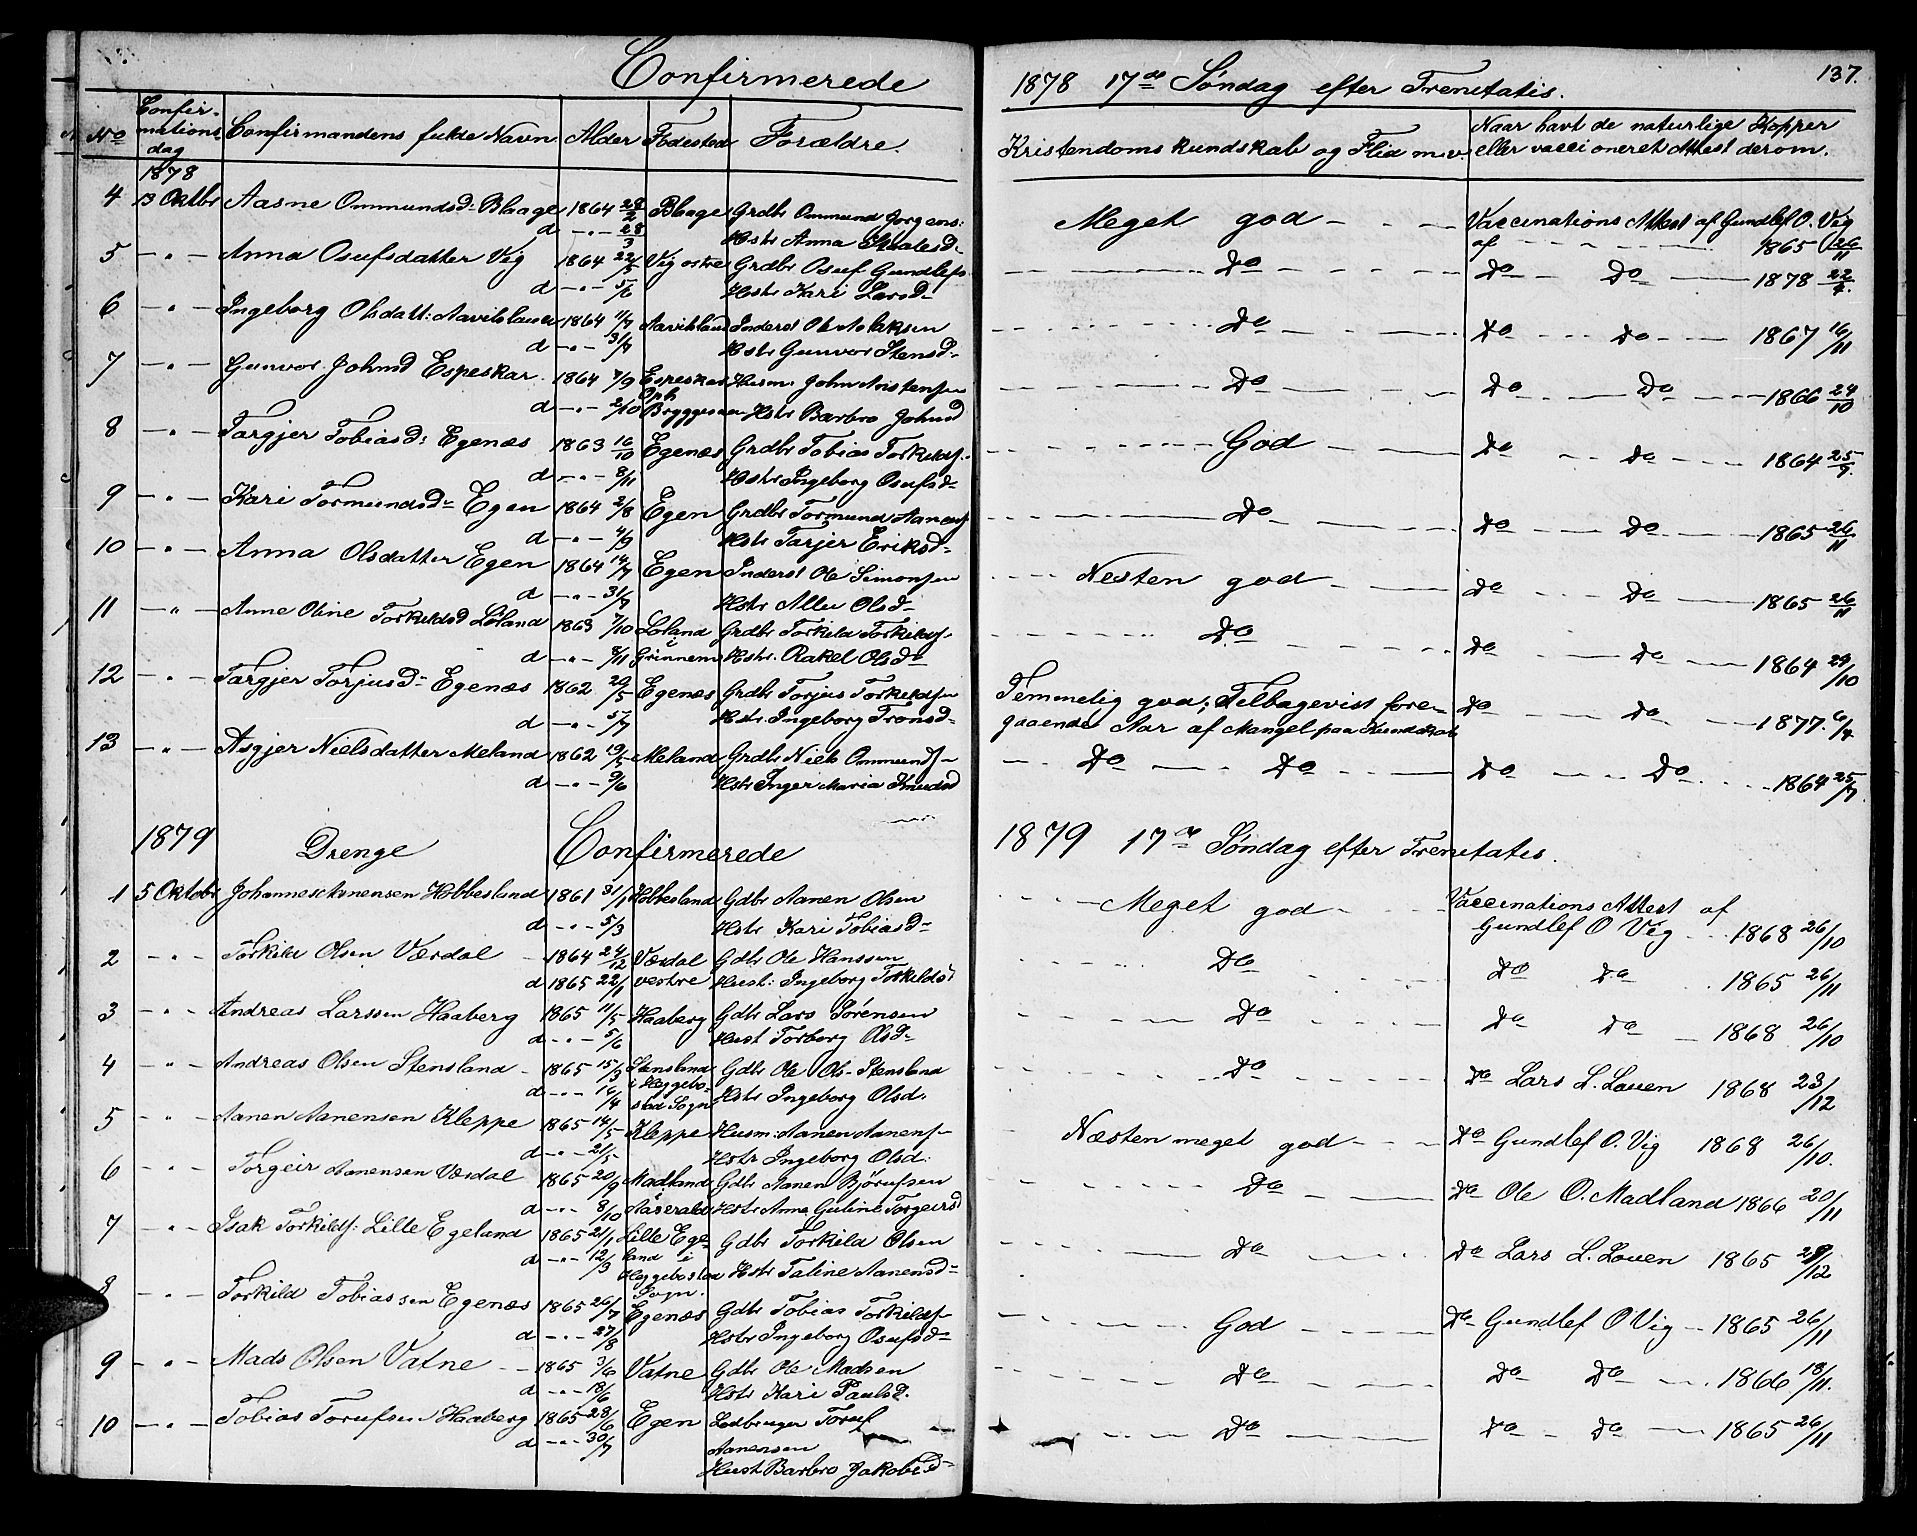 Confirmerede
1878 17de Søndag efter Trenitatis.
137.
No Confirmationsdag Confirmandens fulde Navn Alder Fødested Forældre.
Kristendoms kundskab og Flid m.v. Naar havt de naturlige Kopper eller vaccioneret Attest derom.
1878
4 13 Oktbr Aasne Ommundsd- Blaage 1864 28/2 Blaage Grdbr Ommund Jørgens: Meget god - - - Vaccinations Attest af Gundlef O. Vig
d - " - 28/3 Hstr Anna Staalesd- af 1865 26/11
5 - " - Anna Osufsdatter Vig 1864 22/5 Vig østre Grdbr Osuf Gundlefs- Do Do Do 1878 22/4.
d - " - 5/6 Hstr Kari Larsd-
6 - " - Ingeborg Olsdatt: Aavitsland 1864 11/7 Aavitsland Inderst Ole Aslaksen Do Do Do 1867 16/11
d - " - 31/7 Hstr Gunvor Stensd-
7 - " - Gunvor Johnsd Espeskar 1864 7/9 Espeskar Husm. John Aristensen Do Do Do 1866 24/10
d - " - 2/10 Oph Bryggesaaen Hstr Barbro Johnsd
8 - " - Targjer Tobiasd: Egenæs 1863 16/10 Egenæs Grdbr Tobias Torkeldsf. God Do Do 1864 25/9.
d - " - 8/11 Hstr Ingeborg Osufsd-
9 - " - Kari Tormundsd- Egen 1864 2/8 Egen Grdbr Tormund Aanensf Do Do Do 1865 26/11
d - " - 4/9 Hstr Tarjer Eriksd-
10 - " - Anna Olsdatter Egen 1864 14/7 Egen Inderst Ole Simonsen Nesten god Do Do 1865 26/11
d - " - 31/7 Hstr Allu Olsd-
11 - " - Anne Oline Torkeldsd Löland 1863 7/10 Löland i Grdbr Torkild Torkildsf. Do Do Do 1864 24/10
d - " - 8/11 Grinnem Hstr. Rakel Olsd-
12 - " - Targjer Torjusd- Egenæs 1862 20/5 Egenæs Grdbr Torjus Torkeldsen Temmelig god; Tilbagevist fore- Do Do 1877. 6/4
d - " - 5/7 Hstr. Ingeborg Tronsd- gaaende Aar af Mangel paa Kundskab
13 - " - Asgjer Nielsdatter Meland 1862 19/5 Meland Grdbr Niels Ommundsf- Do Do Do Do 1864 25/7.
d - " - 9/6 Hstr Inger Maria Knudsd
1879 Drenge Confirmerede
1879 17de Søndag efter Trenitatis.
1 5 Oktobr Johannes Aanensen Hobbesland 1861 31/1 Hobbesland Gdbr Aanen Olsen Meget god Vaccinations Attest af
d - " - 5/3 Hstr Kari Tobiasd- Gundlef O Vig 1868 26/10
2 - " - Torkild Olsen Værdal 1864 24/12 Værdal Gdbr Ole Hanssen Do Do Do 1865 26/11
d 1865 22/1 vestre Hust: Ingeborg Torkildsd
3 - " - Andreas Larssen Haaberg 1865 11/5 Haaberg Gdbr Lars Sørensen Do Do Do 1868 26/10
d - " - 5/6 Hust Torborg Olsd-
4 - " - Andreas Olsen Stensland 1865 15/3 Stensland Gdbr Ole Ols- Stensland Do Do Lars L. Lauen 1868 23/12
d - " - 14/4 i Hæggebostad Sogn Hstr Ingeborg Olsd.
5 - " - Aanen Aanensen Kleppe 1865 14/5 Kleppe Husm: Aanen Aanensf- Næsten meget god Do Gundlef O. Vig 1868 26/10.
d - " - 21/5 Hstr Ingeborg Olsd:
6 - " - Torgeir Aanensen Værdal 1865 20/9 Madland Gdbr Aanen Bjørufsen Do Do Ole O. Madland 1866 20/11
d - " - 8/10 i Aaserald Hstr Anna Guline Torgeirsd
7 - " - Isak Torkildsf: Lille Egeland 1865 21/1 Lille Ege- Gdbr Torkild Olsen Do Do Lars L. Lauen 1865 29/12
d - " - 12/3 land i Hæggebostad Sogn. Hstr Taline Aanensd-
8 - " - Torkild Tobiassen Egenæs 1865 26/7 Egenæs Gdbr Tobias Torkildsf- God Do Gundlef O Vig 1865 26/11
d - " - 27/8 Hstr Ingeborg Osufsd-
9 - " - Mads Olsen Vatne 1865 3/6 Vatne Gdbr Ole Madsen Do Do Do 1866 18/11.
d - " - 18/6 Hstr Kari Paulsd.
10 - " - Tobias Torufsen Haaberg 1865 28/6 Egen Ledbruger Toruf Do Do Do 1865 26/11
d - " - 30/7 Aanensen
Hust Barbro Jakobsd-